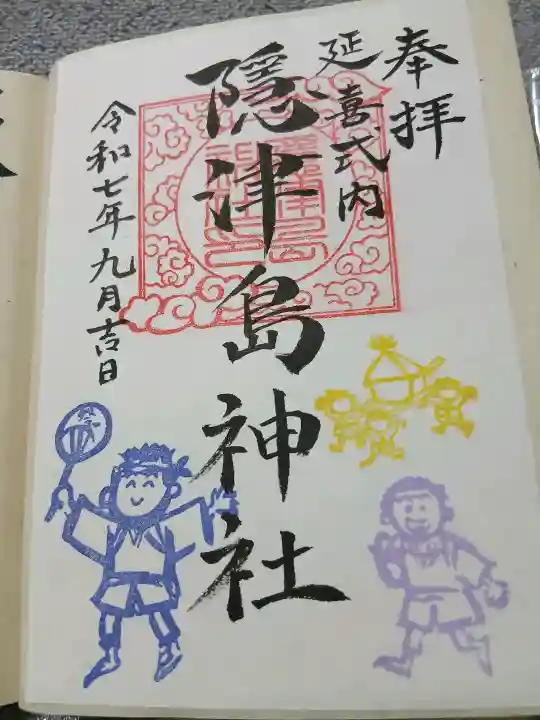 奉拝
延喜式内
隠津島神社
令和七年九月吉日